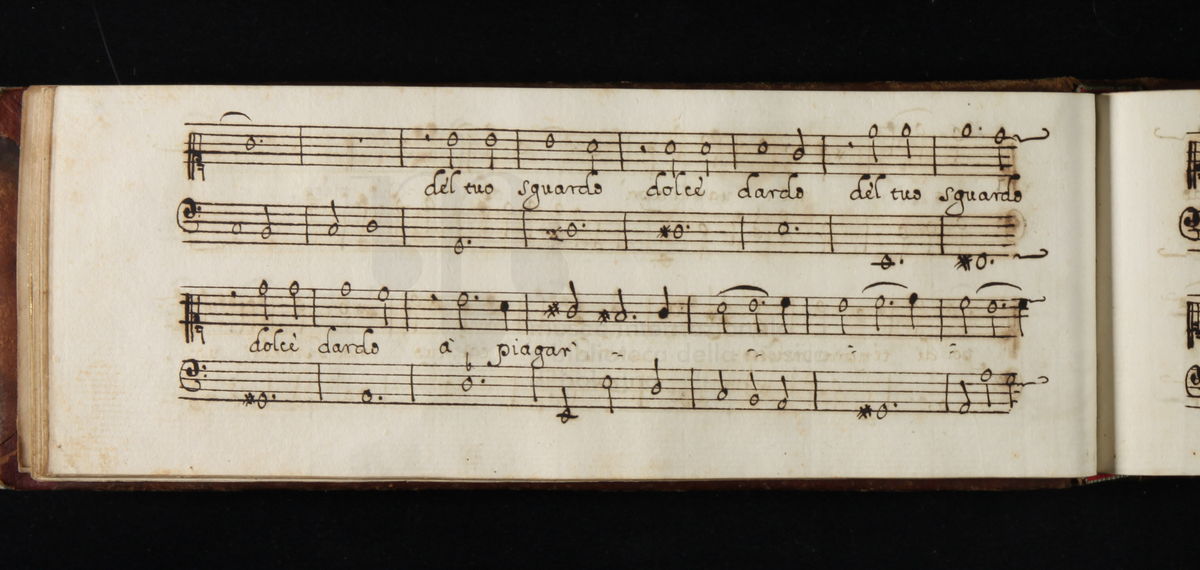 del tuo sguardo dolce dardo del tuo sguardo
dolce dardo à piagar